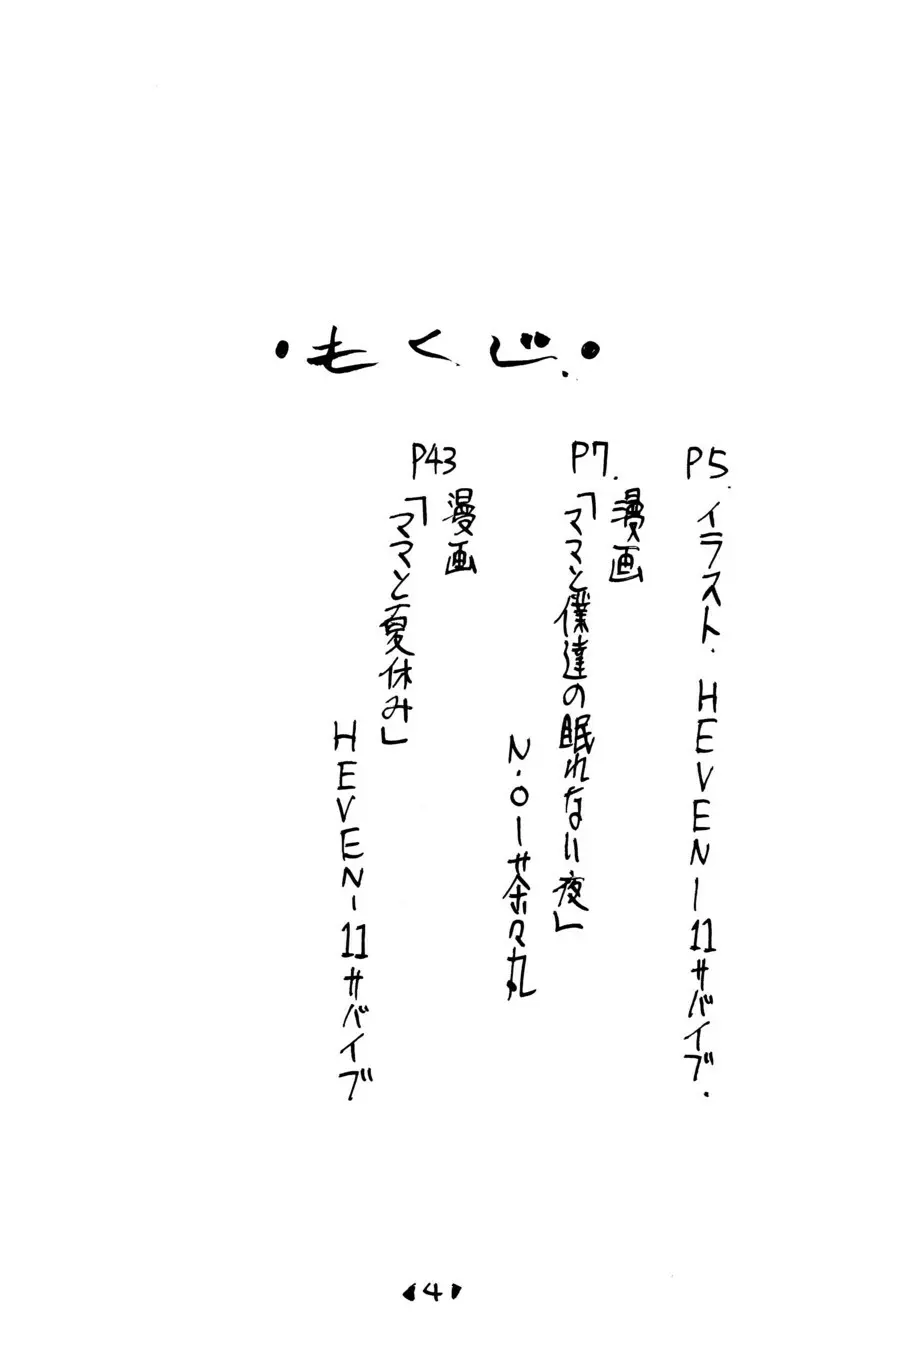 ・もくじ・
P5.イラスト・HEVEN-11サバイブ・
P7.
漫画
「ママと僕達の眠れない夜」
N.O-茶々丸
P43
漫画
「ママと夏休み」
HEVEN-11サバイブ
4